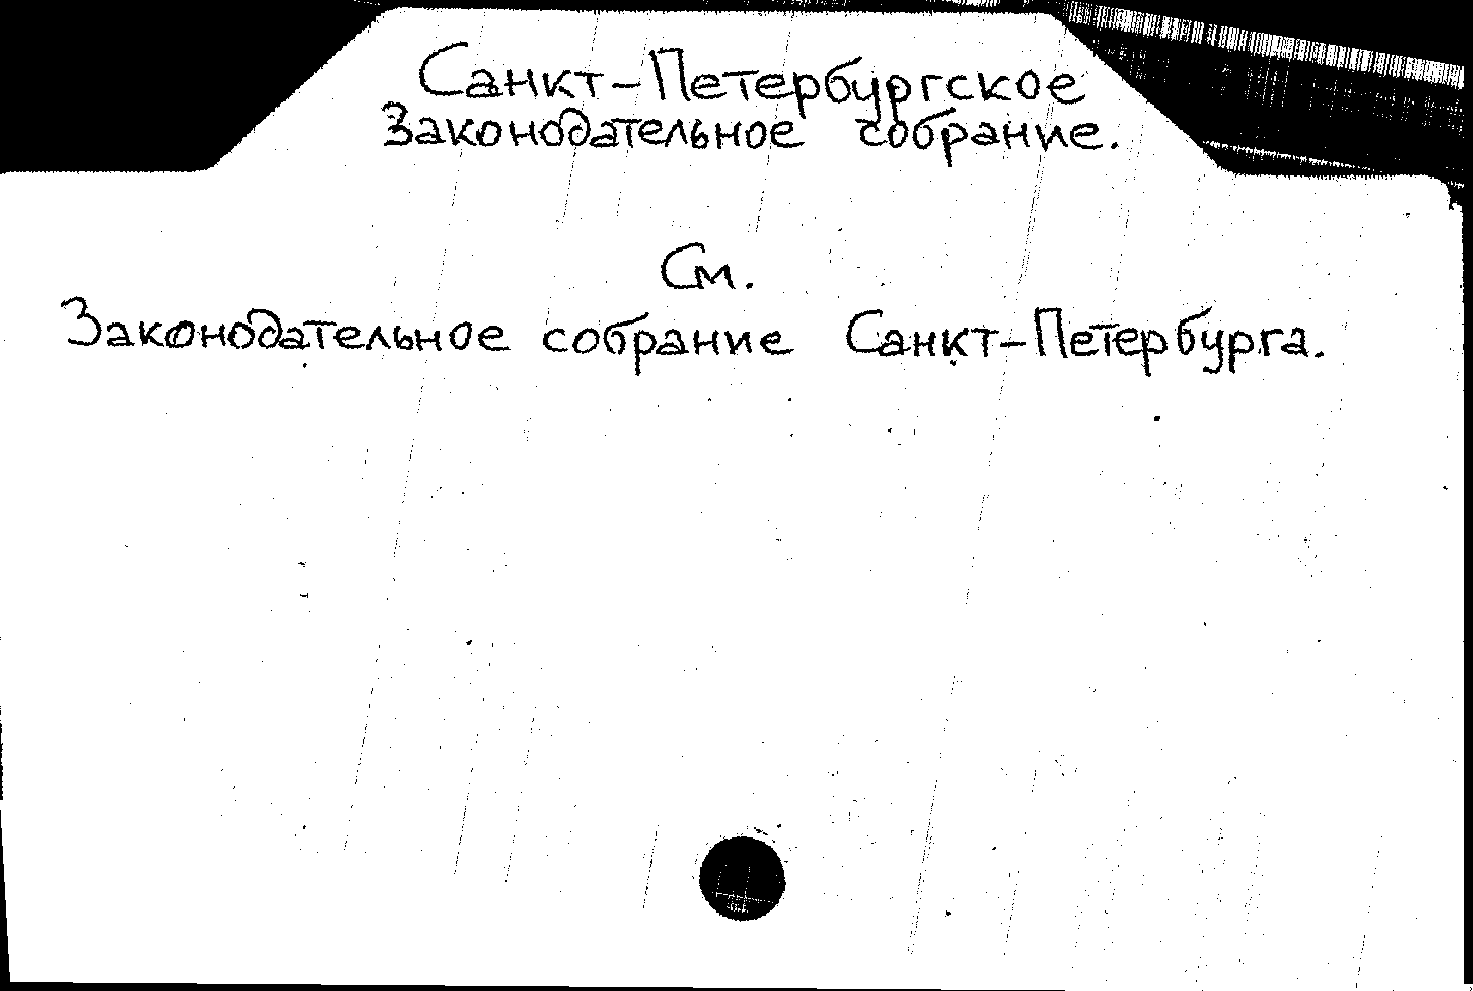 Санкт-Петербургское
Законодательное собрание.
См.
Законодательное собрание Санкт-Петербурга.